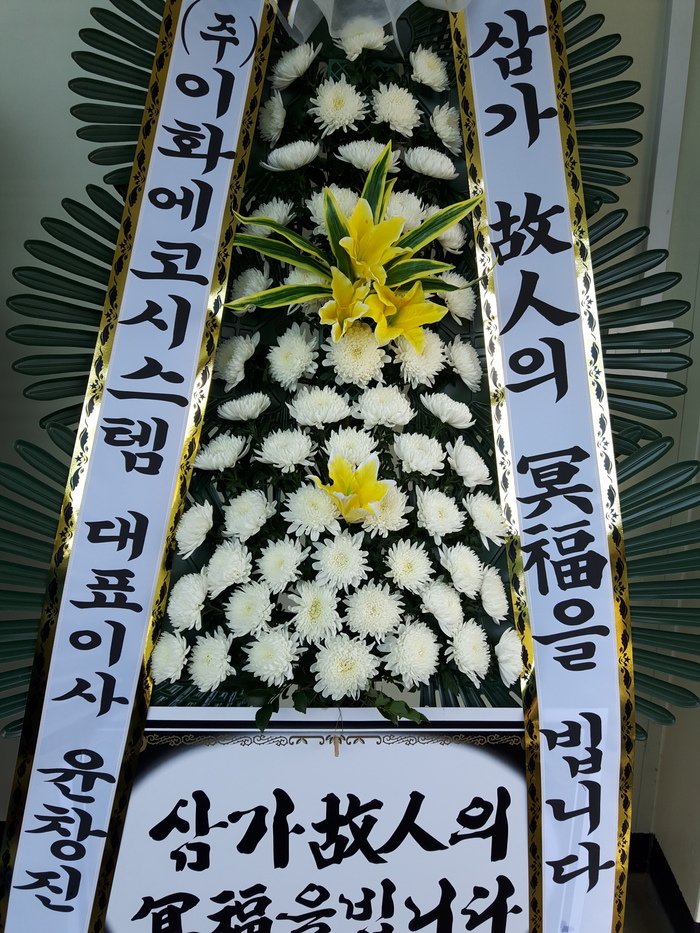 (주)이화에코시스템 대표이사 윤창진
삼가 故人의 冥福을 빕니다
삼가故人의
冥福을빕니다